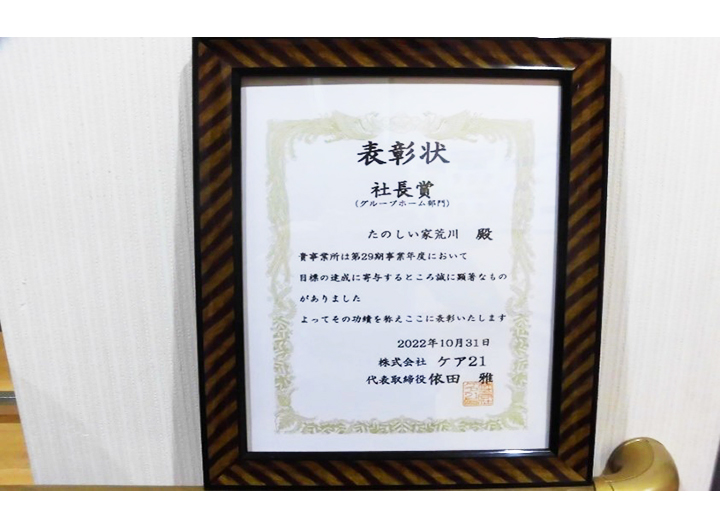 表彰状
社長賞
(グループホーム部門)
たのしい家荒川 殿
貴事業所は第29期事業年度において
目標の達成に寄与するところ誠に顕著なもの
がありました
よってその功績を称えここに表彰いたします
2022年10月31日
株式会社 ケア21
代表取締役 依田 雅